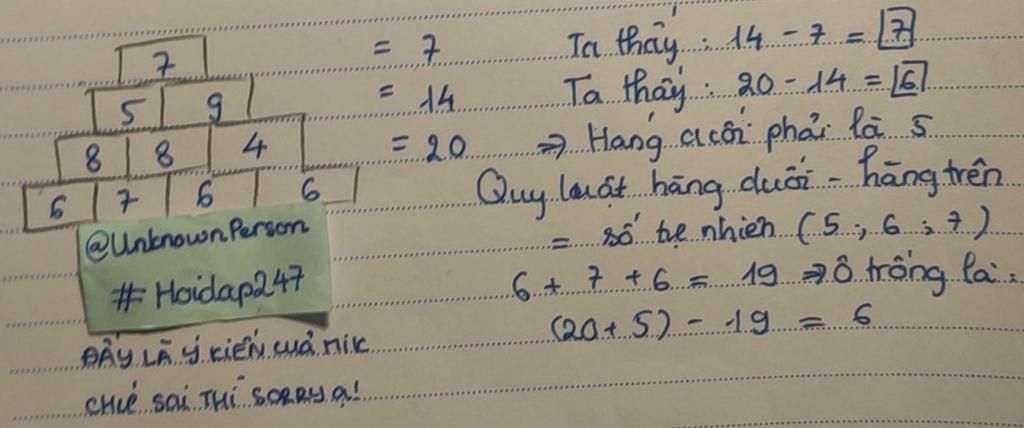 7 = 7 Ta thấy : 14 - 7 = 7
5 9 = 14 Ta thấy : 20 - 14 = 6
8 8 4 = 20 => Hàng cuối phải là 5
6 7 6 6 Quy luật hàng dưới - hàng trên
= số tự nhiên (5 ; 6 ; 7)
6 + 7 + 6 = 19 => Ô trống là :
(20 + 5) - 19 = 6
@UnknownPerson
#Hoidap247
ĐÂY LÀ Ý KIẾN CUẢ MIK
CHỨ SAI THÌ SORRY Ạ!